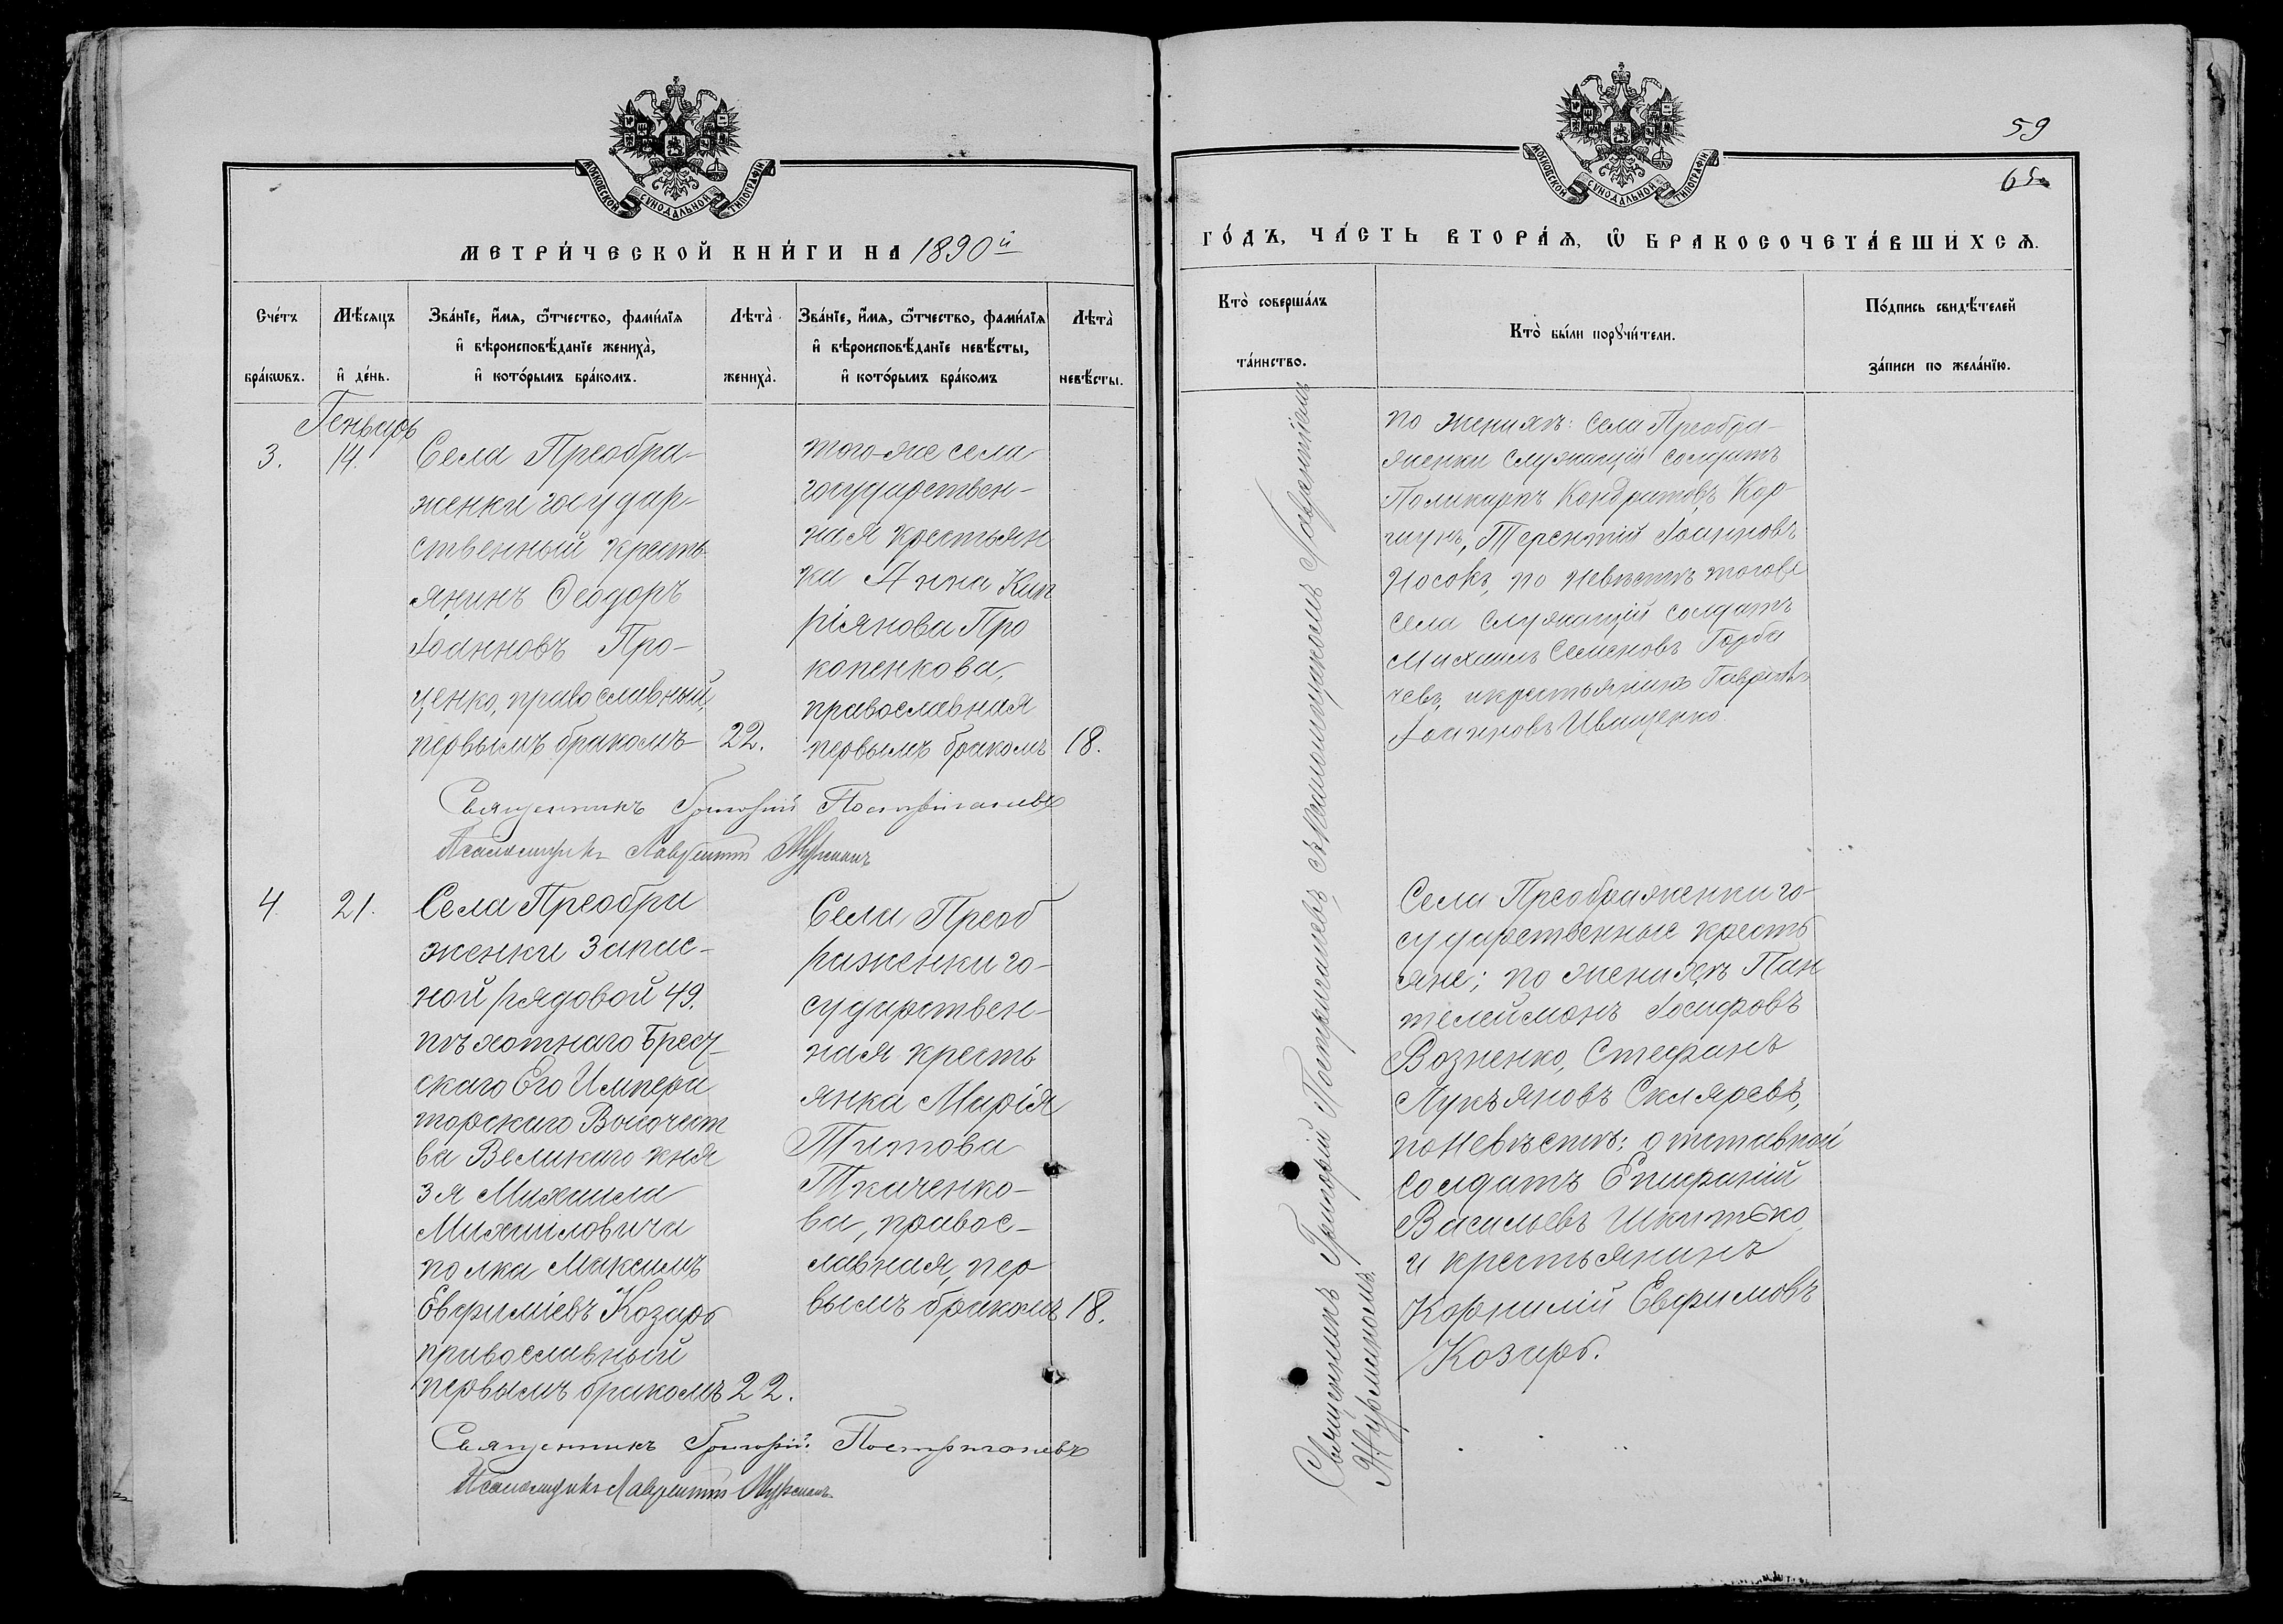 МОСКОВСКОЙ СѴНОДАЛЬНОЙ ТИПОГРАФІИ
МЕТРИ́ЧЕСКОЙ КНИ́ГИ НА 1890й
Сче́тъ бра́кѡвъ.
Мѣ́сяцъ и҆ де́нь.
Зва́нїе, и҆́мѧ, ѻ҆́тчество, фами́лїѧ
и҆ вѣроисповѣ́данїе жениха̀,
и҆ кото́рымъ бра́комъ.
Лѣта̀ жениха̀.
Зва́нїе, и҆́мѧ, ѻ҆́тчество, фами́лїѧ
и҆ вѣроисповѣ́данїе невѣ́сты,
и҆ кото́рымъ бра́комъ
Лѣта̀ невѣ́сты.
Генварь
3.
14.
Села Преобра-
женки государ-
ственный кресть
янинъ Ѳеодоръ
Іоанновъ Про-
ценко, православный,
первымъ бракомъ
22.
того-же села
государствен-
ная крестьян
ка Анна Кип
ріянова Про
копенкова,
православная
первымъ бракомъ
18.
Священникъ Григорій Постригачевъ
Псаломщикъ Лаврентій Журманъ
4
21.
Села Преобра
женки запас-
ной рядовой 49.
пѣхотнаго Брест-
скаго Его Импера
торскаго Высочест
ва Великаго Кня
зя Михаила
Михаиловича
полка Максимъ
Евфиміевъ Козарь
православный
первымъ бракомъ
22.
Села Преоб
раженки го-
сударствен-
ная кресть
янка Марія
Титова
Ткаченко-
ва, правос-
лавная, пер
вымъ бракомъ
18.
Священникъ Григорій Постригачевъ
Псаломщикъ Лаврентій Журманъ
59
65
МОСКОВСКОЙ СѴНОДАЛЬНОЙ ТИПОГРАФІИ
ГО́ДЪ, ЧА́СТЬ ВТОРА́Ѧ, Ѡ҆ БРАКОСОЧЕТА́ВШИХСѦ.
Кто̀ соверша́лъ
та́инство.
Кто̀ бы́ли порꙋчи́тели.
По́дпись свидѣ́телей
за́писи по жела́нїю.
Священникъ Григорій Постригачевъ съ псаломщикомъ Лаврентіемъ
Журманомъ.
по женихѣ: села Преобра-
женки служащій солдатъ
Поликарпъ Кондратовъ Кор-
шунъ, Терентій Іоанновъ
Носокъ, по невѣстѣ тогоже
села служащій солдатъ
Михаилъ Семеновъ Горба
чевъ, и крестьянинъ Гавріилъ
Іоанновъ Иващенко.
Села Преображенки го-
сударственные кресть
яне; по женихѣ Пан
телеймонъ Іосифовъ
Возненко, Стефанъ
Лукъяновъ Скляревъ,
по невѣстѣ: отставной
солдатъ Епифаній
Васильевъ Шкитько
и крестьянинъ
Корнилій Евфимовъ
Козарь.